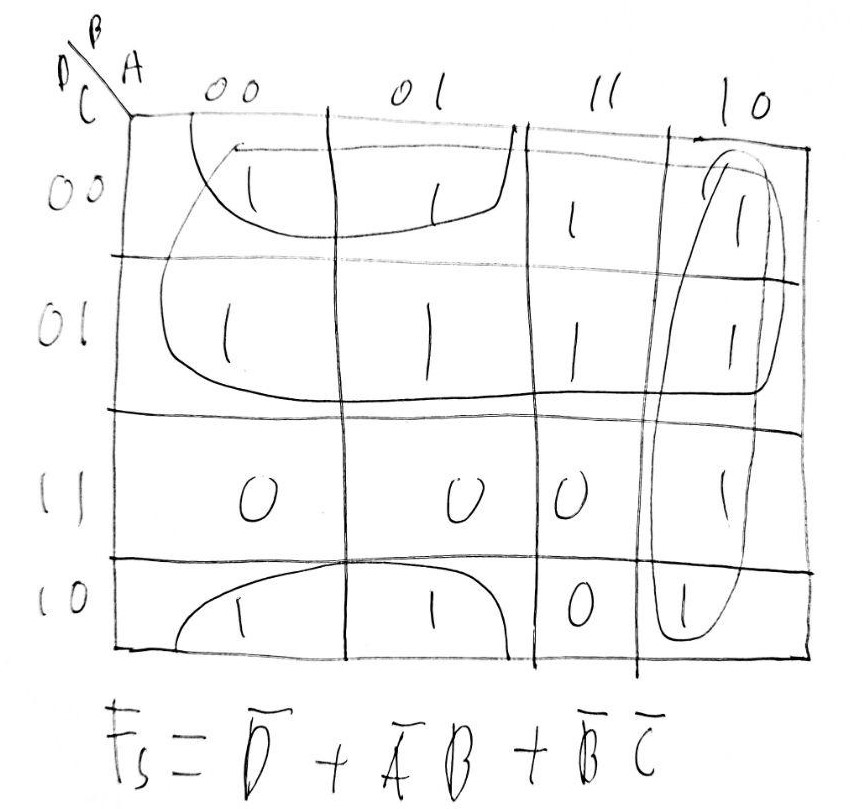 B
D A
C 00 01 11 10
00 1 1 1 1
01 1 1 1 1
11 0 0 0 1
10 1 1 0 1
F₅ = D̅ + A̅ B + B̅ C̅